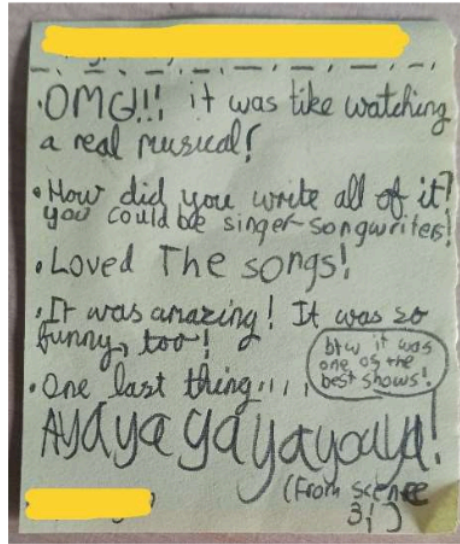 ·OMG!!! it was like watching
a real musical!
·How did you write all of it?
you could be singer-songwriters!
·Loved The songs!
·It was amazing! It was so
funny, too!
btw it was
one of the
best shows!
·One last thing....
Ayayayayayaya!
(From scenee
3!)